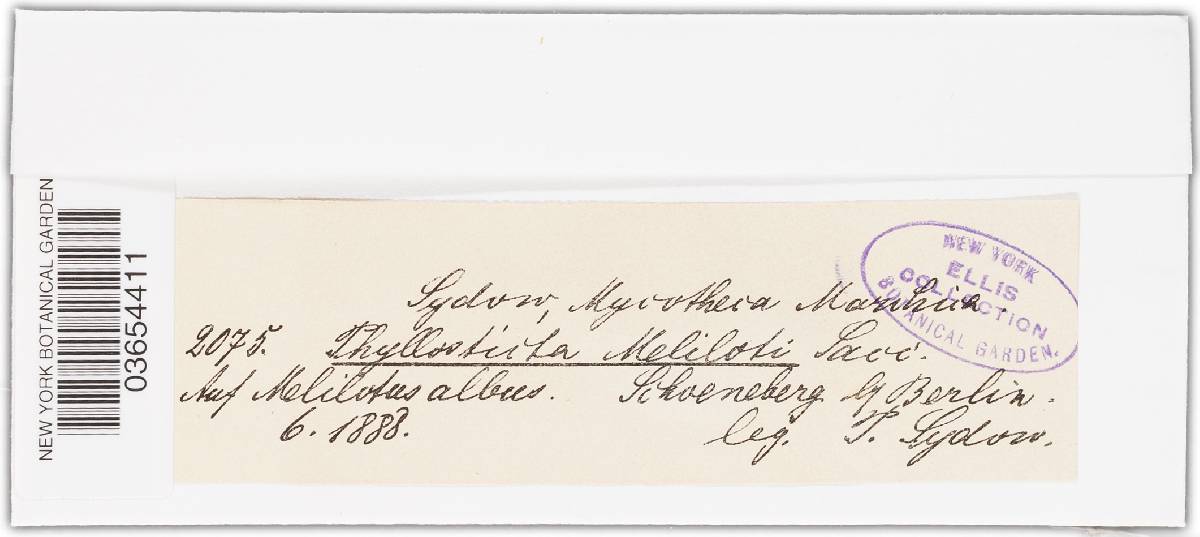 NEW YORK BOTANICAL GARDEN
03654411
NEW YORK
ELLIS
COLLECTION
BOTANICAL GARDEN.
Sydow, Mycotheca Marchica.
2075. Phyllosticta Meliloti Sacc.
Auf Melilotus albus. Schoeneberg b/Berlin.
6. 1888. leg. P. Sydow.